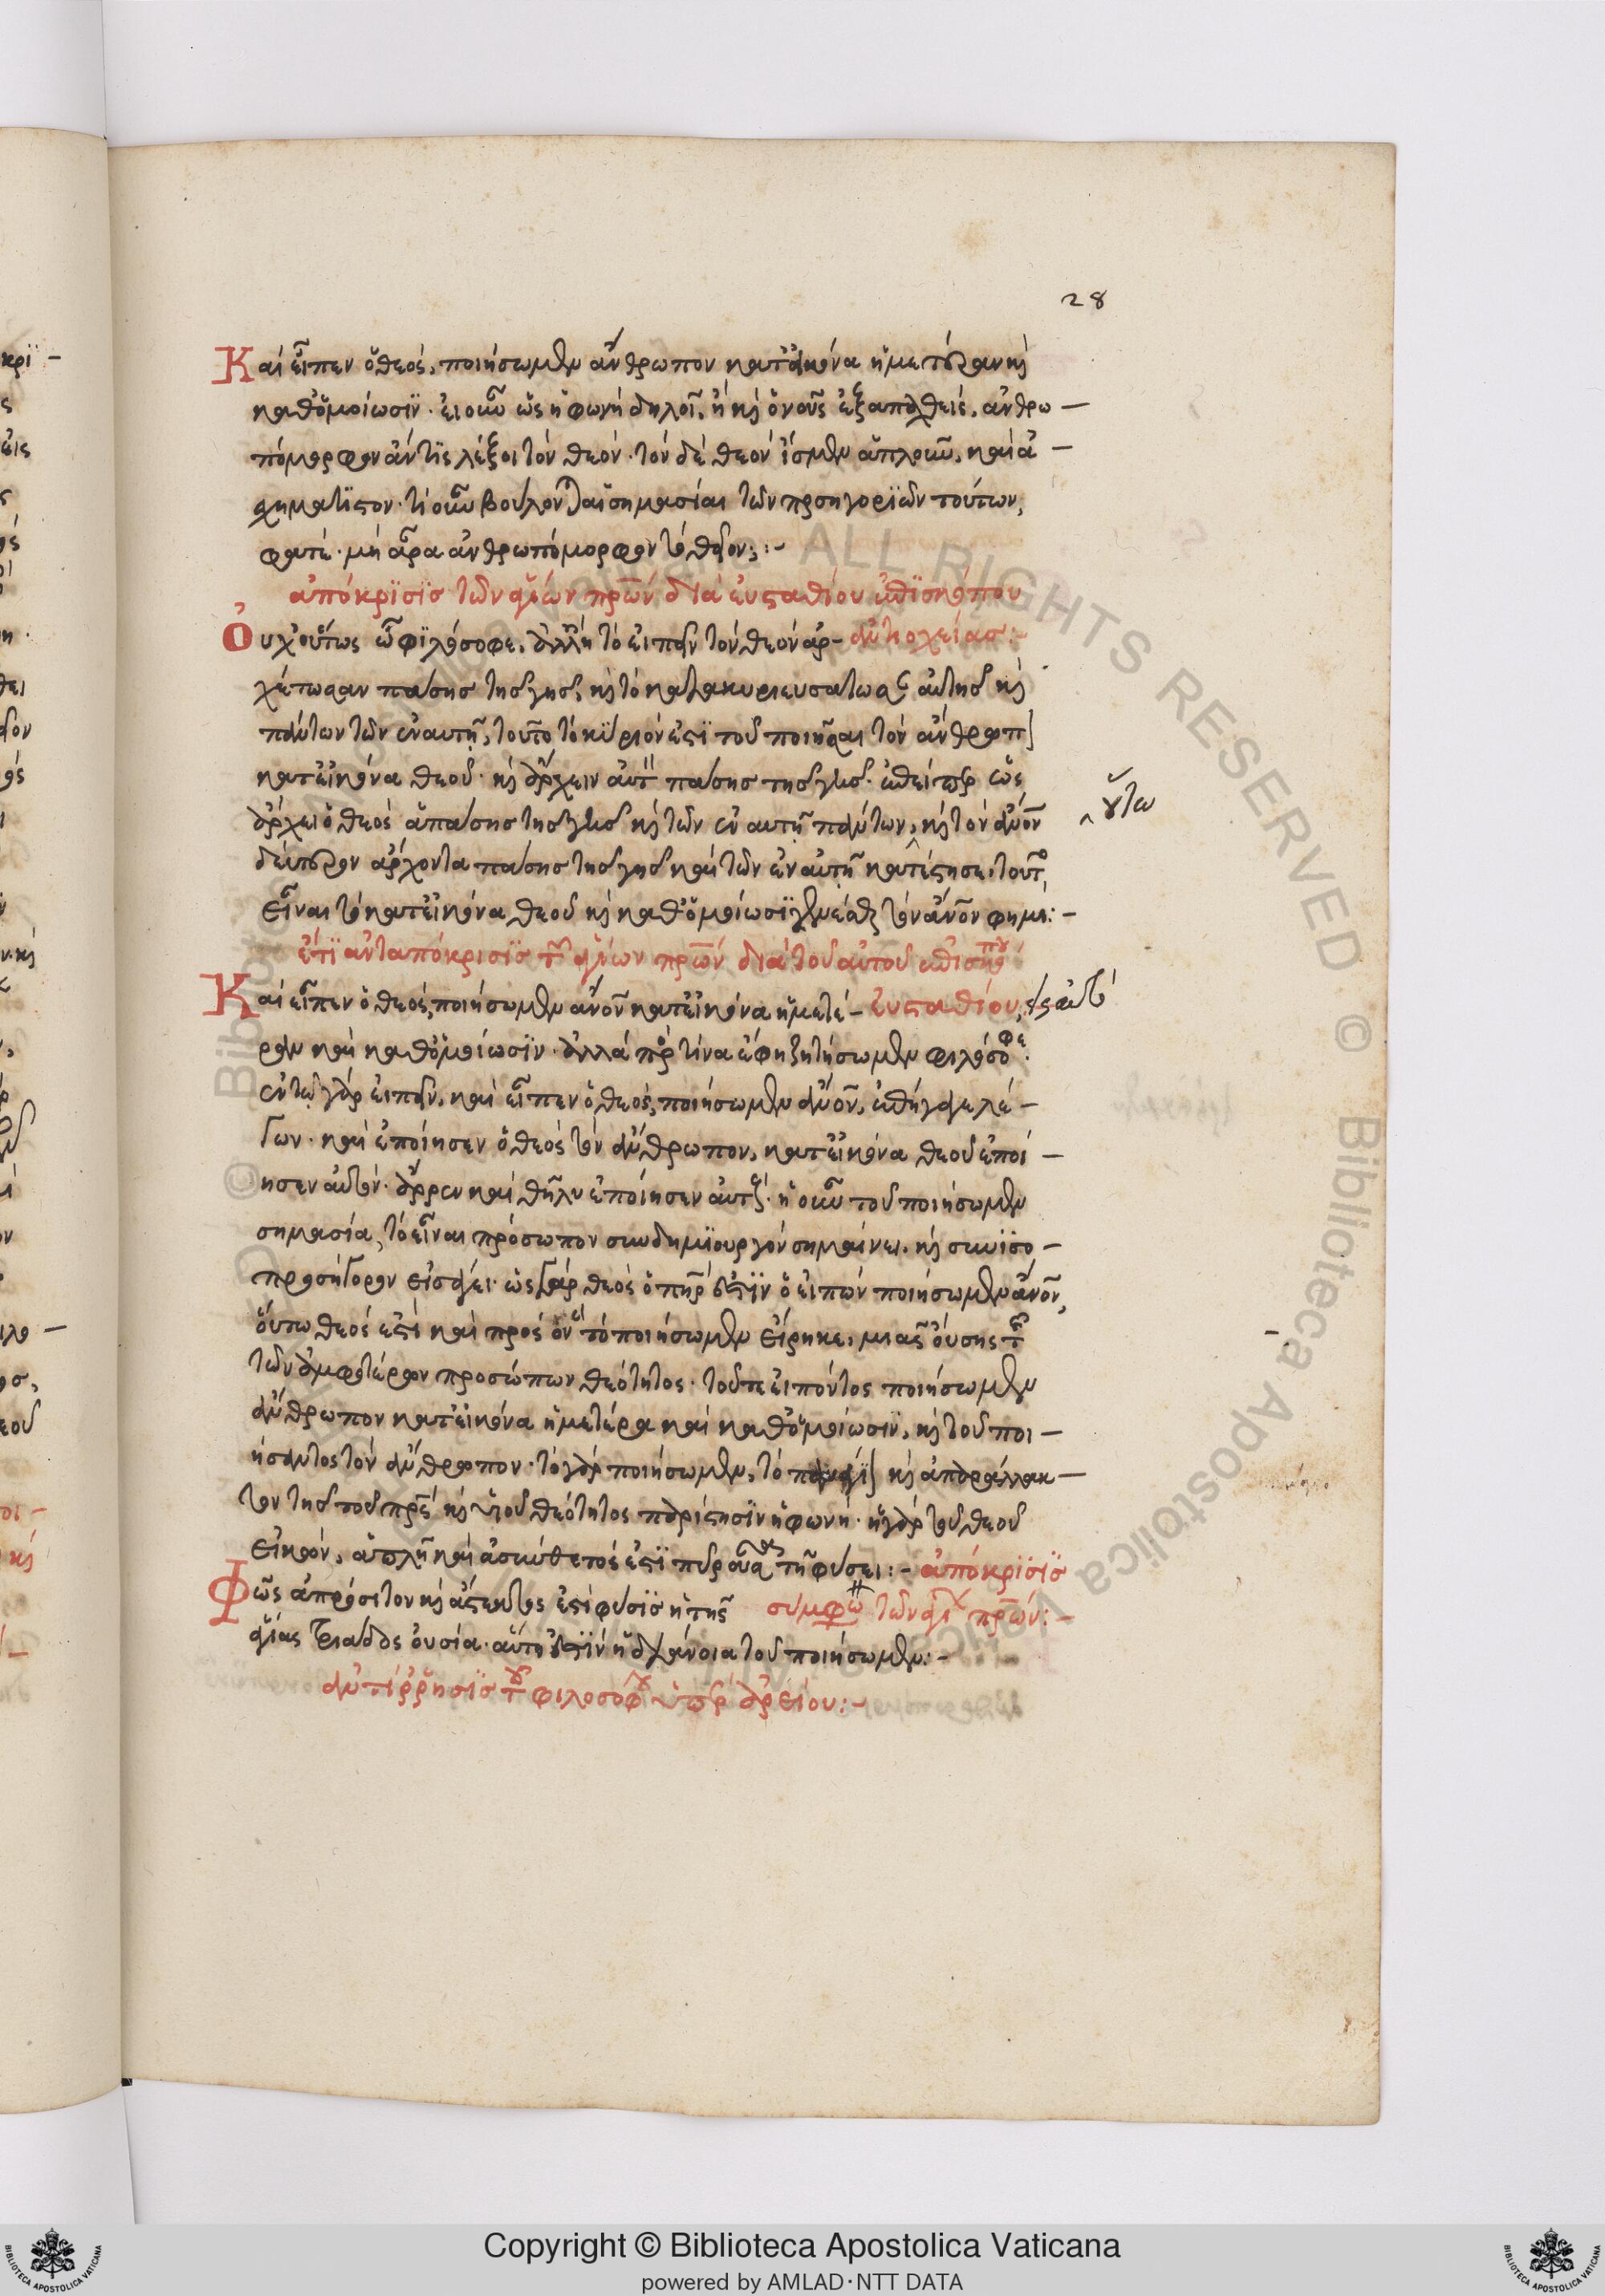 28
Καὶ εἶπεν ὁ θεός, ποιήσωμεν ἄνθρωπον κατ' εἰκόνα ἡμετέραν καὶ
καθ' ὁμοίωσϊν· εἰ οὖν ὡς ἡ φωνὴ δηλοῖ, ἢ καὶ ὁ νοῦς ἐξαπλωθείς, ἀνθρω –
πόμορφον ἄν τϊς λέξοι τὸν θεόν· τὸν δὲ θεὸν ἴσμεν ἁπλοῦν, καὶ ἀ –
σχημάτϊστον· τί οὖν βούλονται αἱ σημασίαι τῶν προσηγορϊῶν τούτων,
φατέ· μὴ ἄρα ἀνθρωπόμορφον τὸ θεῖον; :–
ἀπόκρϊσϊς τῶν ἁγίων πρων διὰ εὐσταθίου ἐπϊσκόπου
Οὐχ οὕτως ὦ φϊλόσοφε, ἀλλ' ἢ τὸ εἰπεῖν τὸν θεὸν ἀρ – ἀντιοχείας :–
χέτωσαν πάσης τῆς γῆς, καὶ τὸ κατακυριευσάτωσαν αὐτῆς καὶ
πάντων τῶν ἐν αυτῇ, τοῦτο τὸ κύριόν ἐστϊ τοῦ ποιῆσαι τὸν ἄνθρωπον
κατ' εἰκόνα θεοῦ· καὶ ἄρχειν αὐτὸν πάσης τῆς γῆς· ἐπείπερ ὡς
ἄρχει ὁ θεὸς ἁπάσης τῆς γῆς καὶ τῶν ἐν αυτῇ πάντων, καὶ τὸν ανον
οὕτω
δεύτερον ἄρχοντα πάσης τῆς γῆς καὶ τῶν ἐν αὐτῇ κατέστησε, τοῦτο
εἶναι τὸ κατ' εἰκόνα θεοῦ καὶ καθ' ὁμοίωσϊν γενέσθαι τὸν ανον φημι :–
ἔτϊ ἀνταπόκρισϊς τῶν ἁγίων πρων διὰ τοῦ αὐτοῦ ἐπισκόπου
Καὶ εἶπεν ὁ θεός, ποιήσωμεν ανον κατ' εἰκόνα ἡμετέ – εὐσταθίου,
ραν καὶ καθ' ὁμοίωσϊν· ἀλλὰ πρὸς τίνα ἔφη ζητήσωμεν φιλόσοφε·
ἐν τῷ γὰρ εἰπεῖν, καὶ εἶπεν ὁ θεός, ποιήσωμεν ανον, ἐπήγαγε λέ –
γων· καὶ ἐποίησεν ὁ θεὸς τὸν ἄνθρωπον, κατ' εἰκόνα θεοῦ ἐποί –
ησεν αὐτόν· ἄρρεν καὶ θῆλυ ἐποίησεν αὐτούς· ἡ οὖν τοῦ ποιήσωμεν
σημασία, τὸ εἶναι πρόσωπον συνδημϊουργὸν σημαίνει, καὶ συνϊσο –
προσήγορον εἰσάγει· ὡς γὰρ θεὸς ὁ πηρ ἐστϊν ὁ εἰπὼν ποιήσωμεν ανον,
οὕτω θεός ἐστι καὶ πρὸς ὃν τὸ ποιήσωμεν εἴρηκε, μιᾶς οὔσης τῆς
τῶν ἀμφοτέρων προσώπων θεότητος· τοῦ τε εἰπόντος ποιήσωμεν
ἄνθρωπον κατ' εἰκόνα ἡμετέρα καὶ καθ' ὁμοίωσϊν, καὶ τοῦ ποι –
ήσαντος τὸν ἄνθρωπον· τὸ γὰρ ποιήσωμεν, τὸ καὶ ἀπαράλλακ –
τον τῆς τοῦ πρς καὶ υἱοῦ θεότητος παρίστησϊν ἡ φωνή· ἡ γὰρ τοῦ θεοῦ
εἰκών, ἁπλῆ καὶ ἀσύνθετός ἐστϊ πῦρ οὖσα τῇ φύσει :– ἀπόκρϊσϊς
Φῶς ἀπρόσιτον καὶ ἄστεκτος ἐστὶ φύσϊς ἡ τῆς συμφω τῶν ἁγι πρων :–
ἁγίας τριάδος οὐσία· αὕτη ἐστϊν ἡ διάνοια τοῦ ποιήσωμεν :–
ἀντίρρησϊς τοῦ φιλοσόφου ὑπὲρ ἀρείου :–
ALL RIGHTS RESERVED © Biblioteca Apostolica Vaticana
Copyright © Biblioteca Apostolica Vaticana
powered by AMLAD·NTT DATA